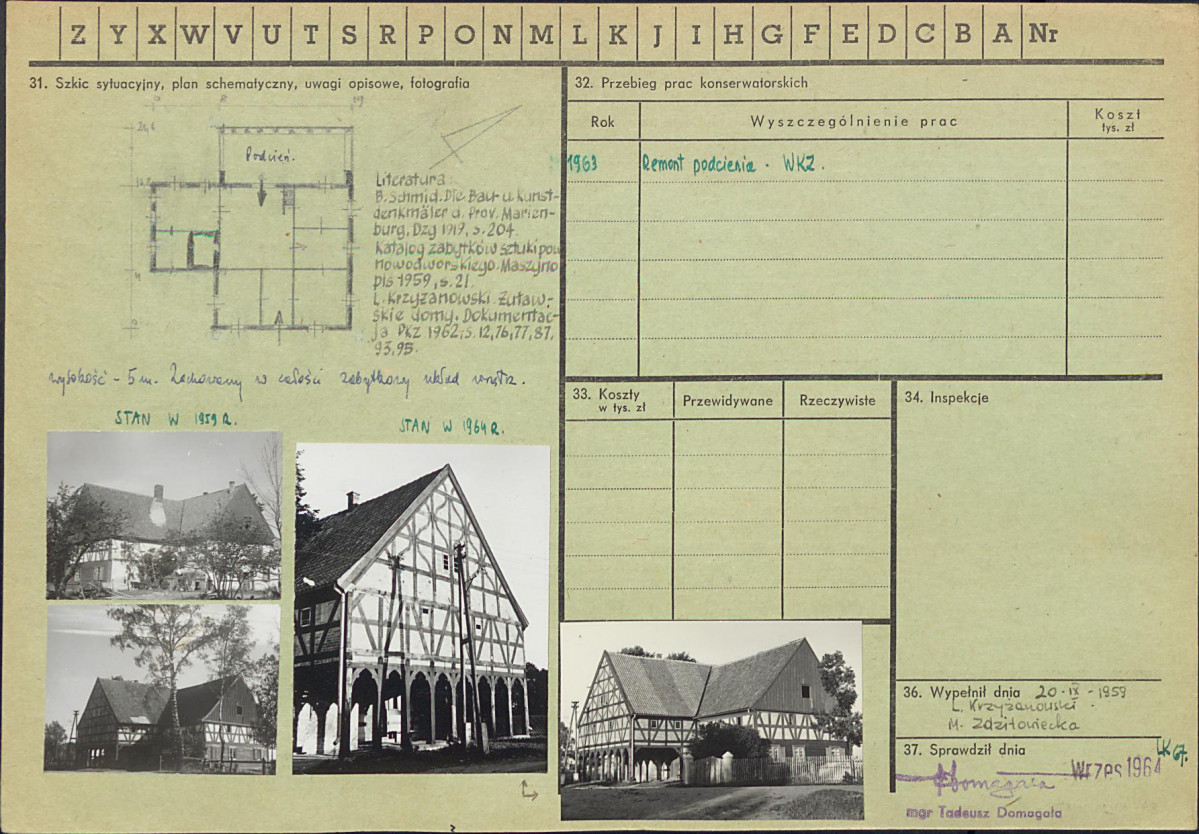 Z Y X W V U T S R P O N M L K J I H G F E D C B A Nr
31. Szkic sytuacyjny, plan schematyczny, uwagi opisowe, fotografia
Podcień.
Literatura:
B. Schmid. Die Bau- u. Kunst-
denkmäler d. Prov. Marien-
burg, Dzg 1919, s. 204.
Katalog zabytków sztuki pow
nowodworskiego. Maszyno
pis 1959, s. 21.
L. Krzyżanowski. Żuław-
skie domy. Dokumentac-
ja PKZ 1962, s. 12, 76, 77, 87,
93, 95.
wysokość - 5 m. Zachowany w całości zabytkowy układ wnętrz.
STAN W 1959 R.
STAN W 1964 R.
32. Przebieg prac konserwatorskich
Rok
Wyszczególnienie prac
Koszt
tys. zł
1963
Remont podcienia - WKZ.
33. Koszty
w tys. zł
Przewidywane
Rzeczywiste
34. Inspekcje
36. Wypełnił dnia 20 · IX - 1959
L. Krzyżanowski -
M. Zdziłowiecka
37. Sprawdził dnia
LK 67.
Wrzes 1964
Domagała
mgr Tadeusz Domagała